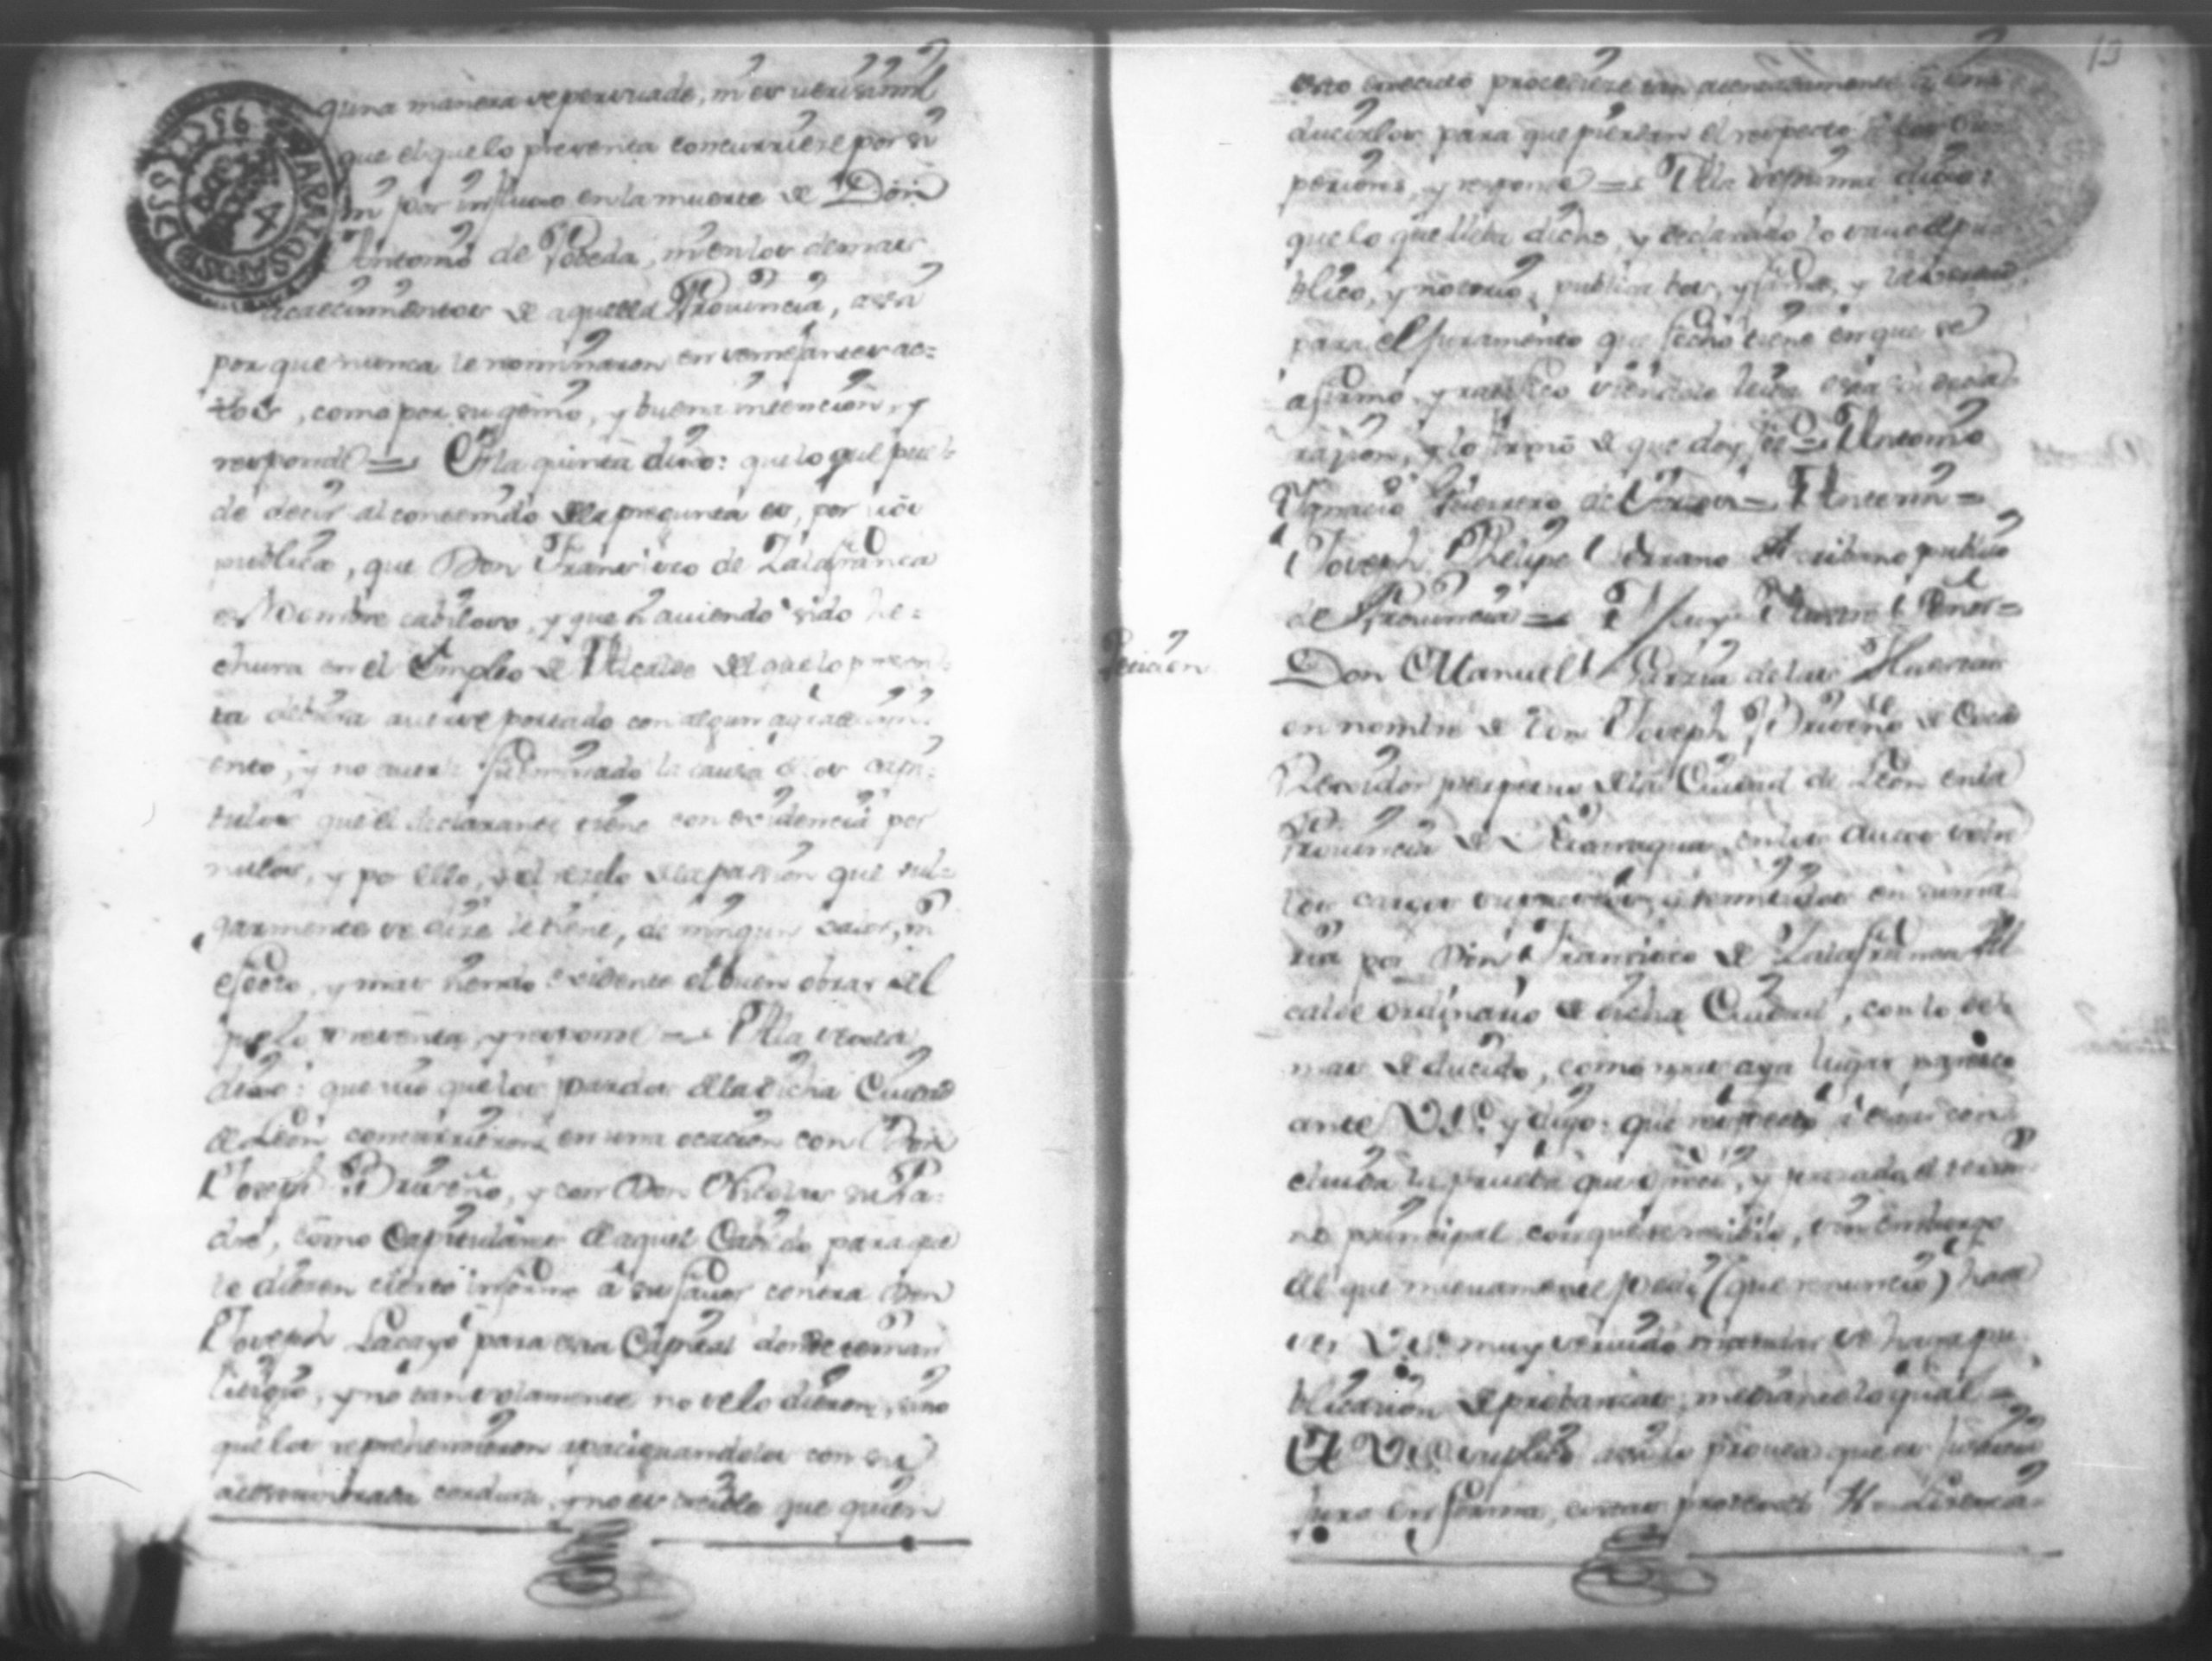 guna manera se persuade, ni es verisimil
que el que lo presenta concurriese por si
ni por influxo en la muerte de Don
Antonio de Poveda, ni en los demas
acaecimientos de aquella Provincia, assi
por que nunca le nominaron en semejantes ac=
tos, como por su genio, y buena intencion, y
responde = A la quinta dixo: que lo que pue=
de decir al contenido de la pregunta es, por vox
publica, que Don Francisco de Zalafranca
es Hombre cabiloso, y que haviendo sido he=
chura en el Empleo de Alcalde del que lo presen=
ta debiera averse portado con algun agradecimi=
ento, y no averle fulminado la causa de los capi=
tulos que el declarante tiene con evidencia por
nulos, y por ello, y el zelo de la passion que vul=
garmente se dize le tiene, de ningun valor, ni
efecto, y mas siendo evidente el buen obrar del
que lo presenta, y responde = A la sexta
dixo: que vio que los pardos de la dicha Ciudad
de Leon concurrieron en una ocacion con Don
Joseph Briseño, y con Don Nicolas su Pa=
dre, como Capitulares de aquel Cabildo para que
le diesen cierto informe â su favor contra Don
Joseph Lacayo para esta Capital donde tenian
litigio, y no tan solamente no se lo dieron, sino
que los reprehendieron apaciguandolos con su
acostumbrada cordura, y no es creible que quien
esto executó procediese tan atentadamente
ducirlos para que pierdan el respecto
periores, y responde = A la septima dixo:
que lo que lleva dicho, y declarado lo save de pu
blico, y notorio, publica vox, y fama, y la verdad
para el juramento que fecho tiene en que se
afirmó, y ratificó siendole leida esta su decla
razion, y lo firmó de que doy fee = Antonio
Ignacio Guerrero de = Ante mi =
Joseph Phelipe Serrano Escribano publico
de Provincia = Muy Ilustre Señor =
Peticion
Don Manuel Garzia de las Huertas
en nombre de Don Joseph Briseño de Coca
Rexidor perpetuo de la Ciudad de Leon en la
Provincia de Nicaragua, en los autos sobre
los cargos supuestos, y remitidos en suma
ria por Don Francisco de Zalafranca Al
calde ordinario de dicha Ciudad, con lo de
mas deducido, como mas aya lugar paresco
ante VS.ª y digo: que respecto â estar con
cluida la prueba que ofreci, y passado el termi
no principal con que se recibio, sin embargo
del que nuevamente pedi (que renuncio) ha de
ser VS.ª muy servido mandar se haga pu
blicacion de probanzas, mediante lo qual =
A VS.ª suplico assi lo provea que es justicia
juro en forma, costas protexto Vª = Lizencia=